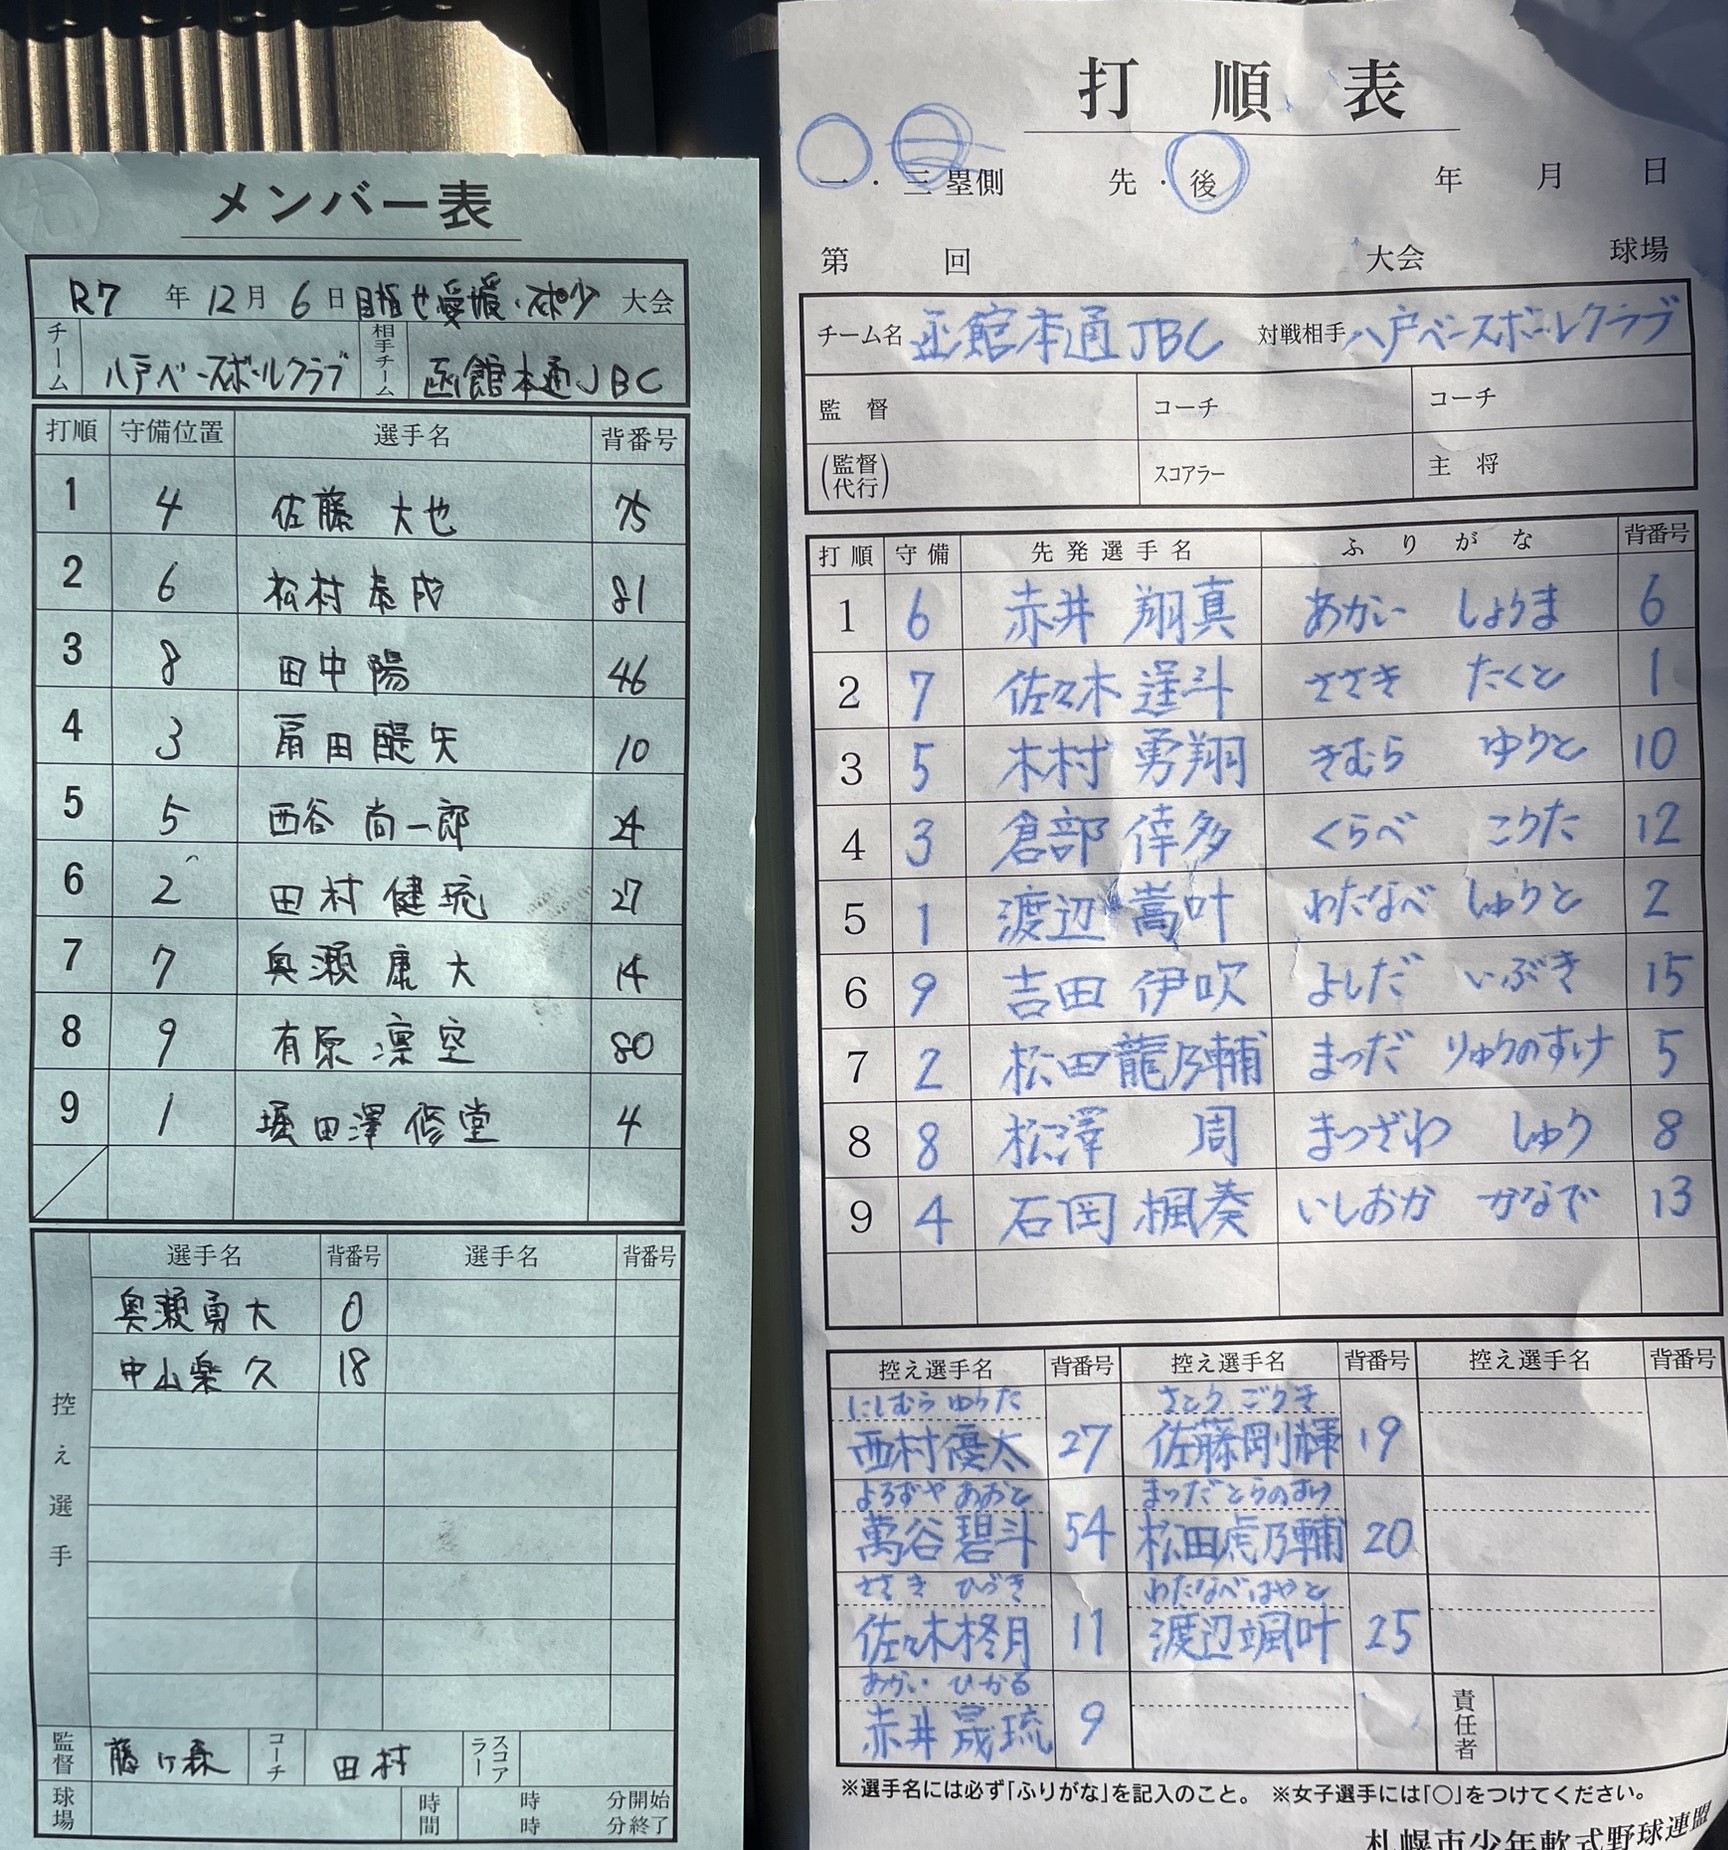 メンバー表
R7 年 12月 6日 目指せ愛媛・ポップ 大会
チーム 八戸ベースボールクラブ 相手チーム 函館本通JBC
打順 守備位置 選手名 背番号
1 4 佐藤 大也 75
2 6 松村 泰成 81
3 8 田中 陽 46
4 3 扇田 醍矢 10
5 5 西谷 尚一郎 24
6 2 田村 健琉 27
7 7 奥瀬 康大 14
8 9 有原 凛空 80
9 1 堀田澤 修堂 4
控え選手
選手名 背番号 選手名 背番号
奥瀬勇大 0
中山楽久 18
監督 藤ヶ森 コーチ 田村 スコアラー
球場 時間 時 分開始
時 分終了
打順表
一・三塁側 先・後 年 月 日
第 回 大会 球場
チーム名 函館本通JBC 対戦相手 八戸ベースボールクラブ
監督 コーチ コーチ
(監督代行) スコアラー 主将
打順 守備 先発選手名 ふりがな 背番号
1 6 赤井 翔真 あかい しょうま 6
2 7 佐々木 逞斗 ささき たくと 1
3 5 木村 勇翔 きむら ゆうと 10
4 3 倉部 倖多 くらべ こうた 12
5 1 渡辺 嵩叶 わたなべ しゅうと 2
6 9 吉田 伊吹 よしだ いぶき 15
7 2 松田龍乃輔 まつだ りゅうのすけ 5
8 8 松澤 周 まつざわ しゅう 8
9 4 石岡 楓奏 いしおか かなで 13
控え選手名 背番号 控え選手名 背番号 控え選手名 背番号
にしむら ゆうた さとう ごうき
西村優太 27 佐藤剛輝 19
よろずや あおと まつだ とらのすけ
萬谷碧斗 54 松田虎乃輔 20
ささき ひづき わたなべ はやと
佐々木柊月 11 渡辺颯叶 25
あかい ひかる
赤井晟琉 9
責任者
※選手名には必ず「ふりがな」を記入のこと。 ※女子選手には「○」をつけてください。
札幌市少年軟式野球連盟